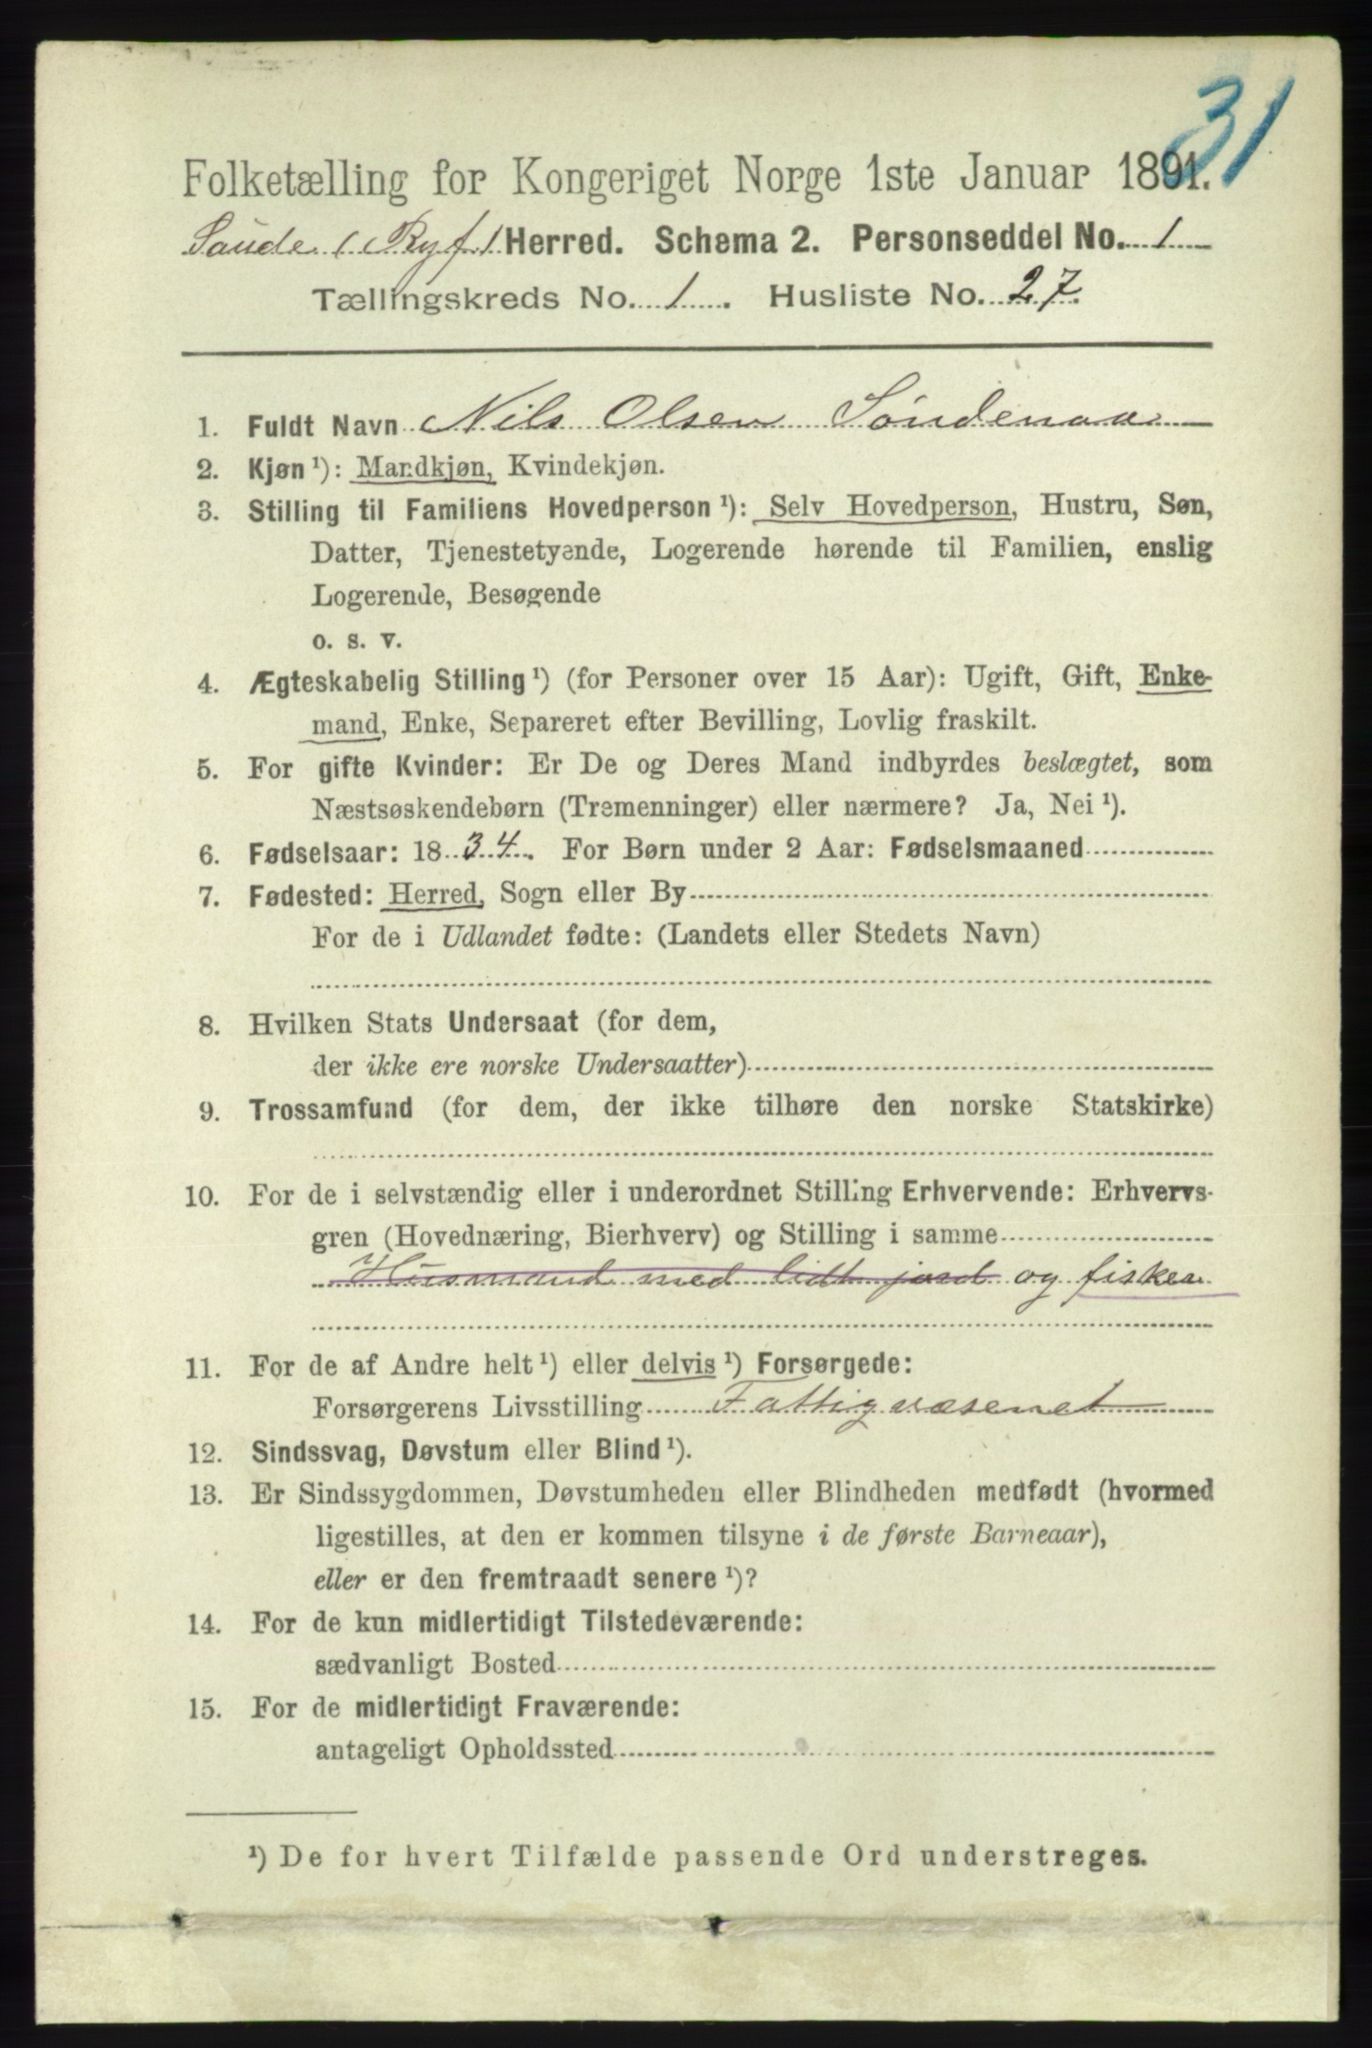 31
Folketælling for Kongeriget Norge 1ste Januar 1891.
Saude (Ryf) Herred. Schema 2. Personseddel No. 1
Tællingskreds No. 1. Husliste No. 27.
1. Fuldt Navn Nils Olsen Søndenaa
2. Kjøn¹): Mandkjøn, Kvindekjøn.
3. Stilling til Familiens Hovedperson¹): Selv Hovedperson, Hustru, Søn,
Datter, Tjenestetyende, Logerende hørende til Familien, enslig
Logerende, Besøgende
o. s. v.
4. Ægteskabelig Stilling¹) (for Personer over 15 Aar): Ugift, Gift, Enke-
mand, Enke, Separeret efter Bevilling, Lovlig fraskilt.
5. For gifte Kvinder: Er De og Deres Mand indbyrdes beslægtet, som
Næstsøskendebørn (Tremenninger) eller nærmere? Ja, Nei¹).
6. Fødselsaar: 1834. For Børn under 2 Aar: Fødselsmaaned
7. Fødested: Herred, Sogn eller By
For de i Udlandet fødte: (Landets eller Stedets Navn)
8. Hvilken Stats Undersaat (for dem,
der ikke ere norske Undersaatter)
9. Trossamfund (for dem, der ikke tilhøre den norske Statskirke)
10. For de i selvstændig eller i underordnet Stilling Erhvervende: Erhvervs-
gren (Hovednæring, Bierhverv) og Stilling i samme
Husmand med lidt jord og fisker
11. For de af Andre helt¹) eller delvis¹) Forsørgede:
Forsørgerens Livsstilling Fattigvæsenet
12. Sindssvag, Døvstum eller Blind¹).
13. Er Sindssygdommen, Døvstumheden eller Blindheden medfødt (hvormed
ligestilles, at den er kommen tilsyne i de første Barneaar),
eller er den fremtraadt senere¹)?
14. For de kun midlertidigt Tilstedeværende:
sædvanligt Bosted
15. For de midlertidigt Fraværende:
antageligt Opholdssted
¹) De for hvert Tilfælde passende Ord understreges.